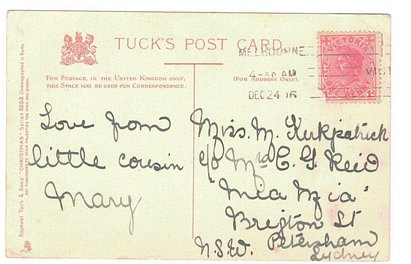 TUCK'S POST CARD.
FOR POSTAGE, IN THE UNITED KINGDOM ONLY,
THIS SPACE MAY BE USED FOR CORRESPONDENCE.
(FOR ADDRESS ONLY.)
MELBOURNE
4-30 AM
DEC 24 06
VICTORIA
Love from
little cousin
Mary
Miss. M. Kirkpatrick
c/o Mrs C. G. Reid
"Mia Mia"
Brighton St
Petersham
N.S.W. Sydney